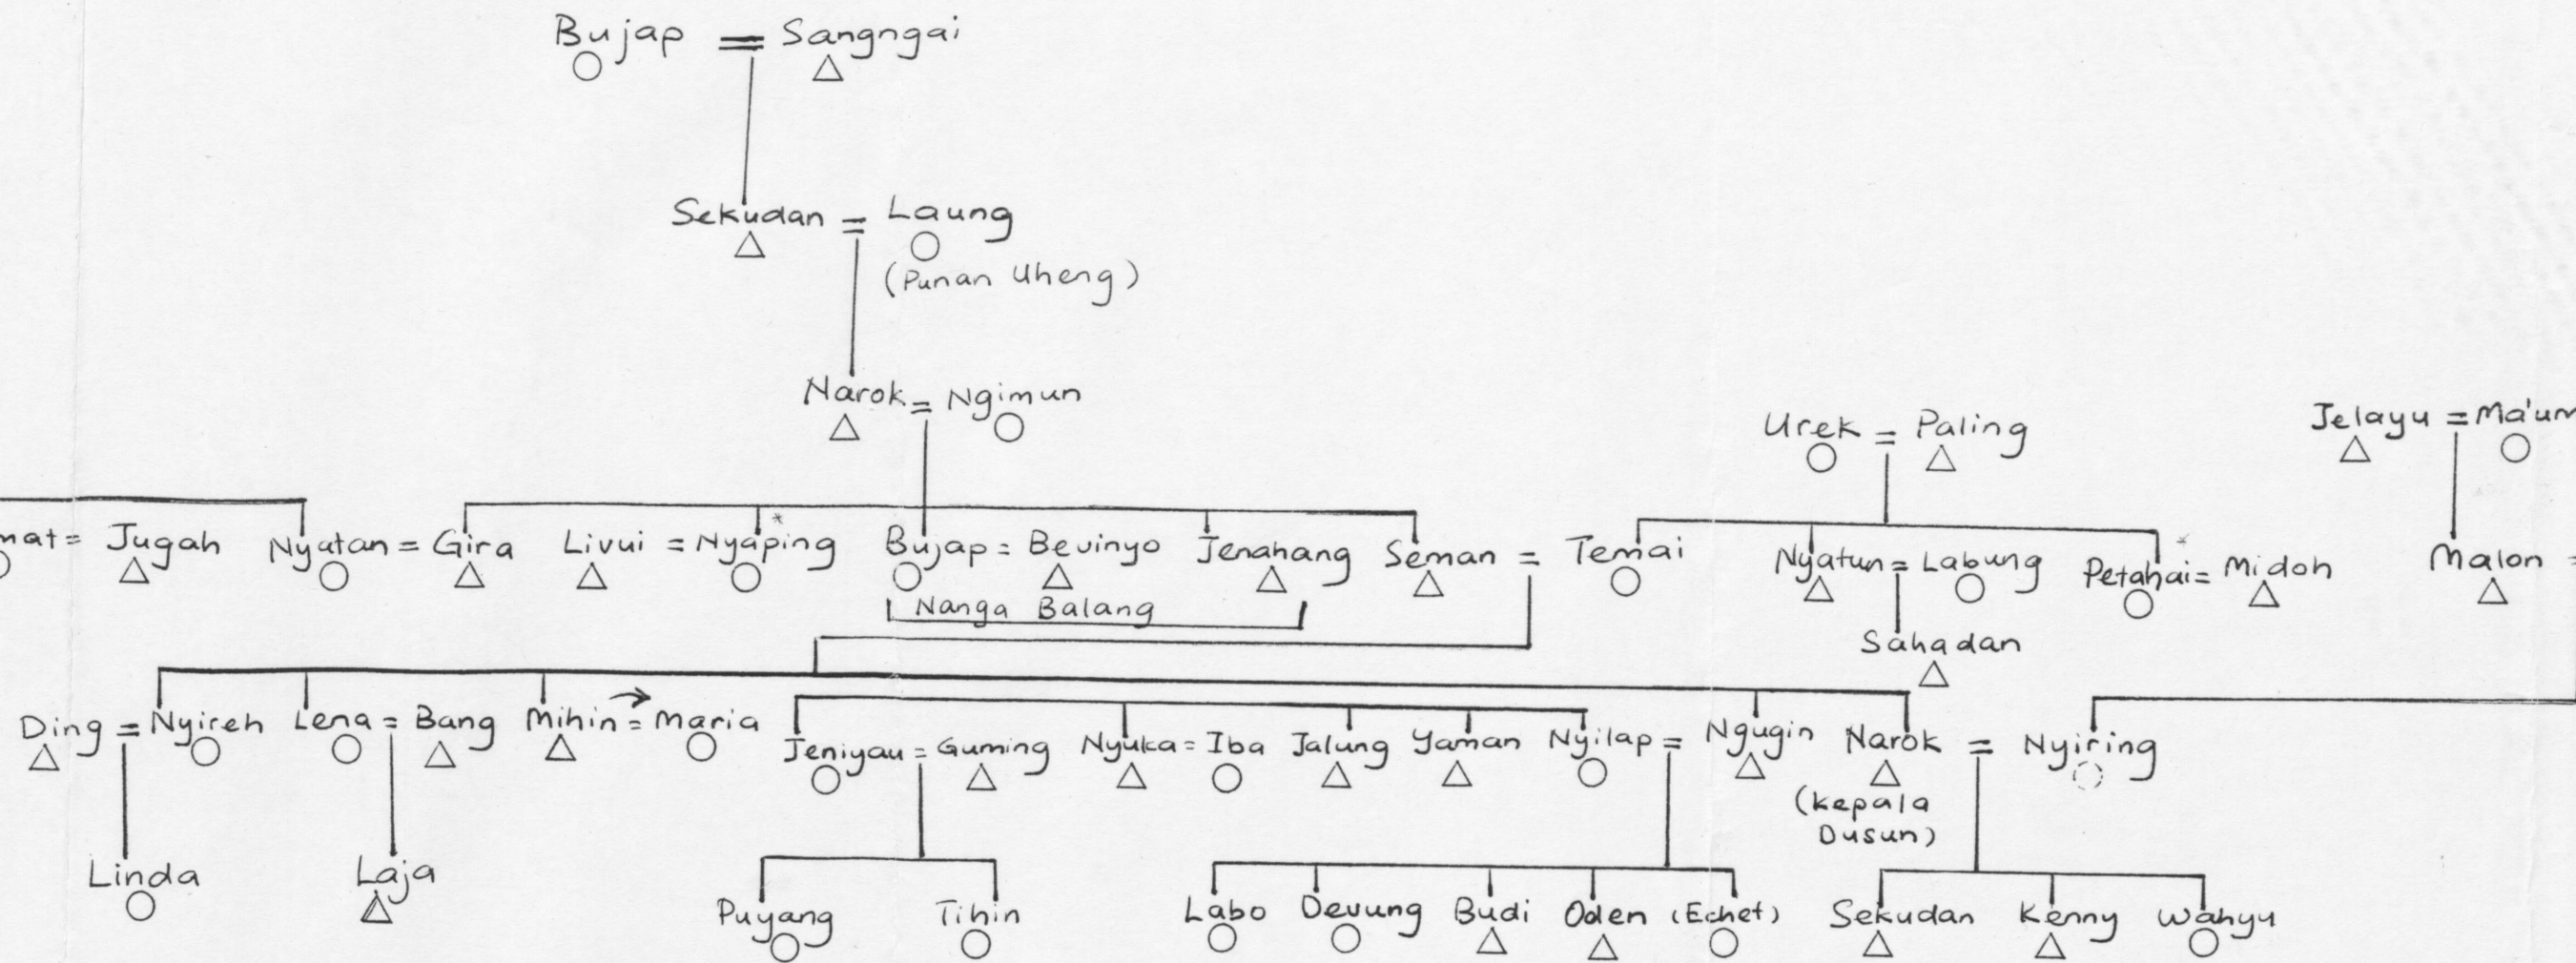 Bujap = Sangngai
Sekudan = Laung
(Punan Uheng)
Narok = Ngimun
Urek = Paling
Jelayu = Ma'um
mat = Jugah
Nyatan = Gira
Livui = Nyaping *
Bujap = Bevinyo
Jenahang
Seman = Temai
Nyatun = Labung
Petahai * = Midoh
Malon =
Nanga Balang
Sahadan
Ding = Nyireh
Lena = Bang
Mihin = Maria
Jeniyau = Guming
Nyuka = Iba
Jalung
Yaman
Nyilap = Ngugin
Narok = Nyiring
(Kepala
Dusun)
Linda
Laja
Puyang
Tihin
Labo
Devung
Budi
Oden
(Echet)
Sekudan
Kenny
Wahyu